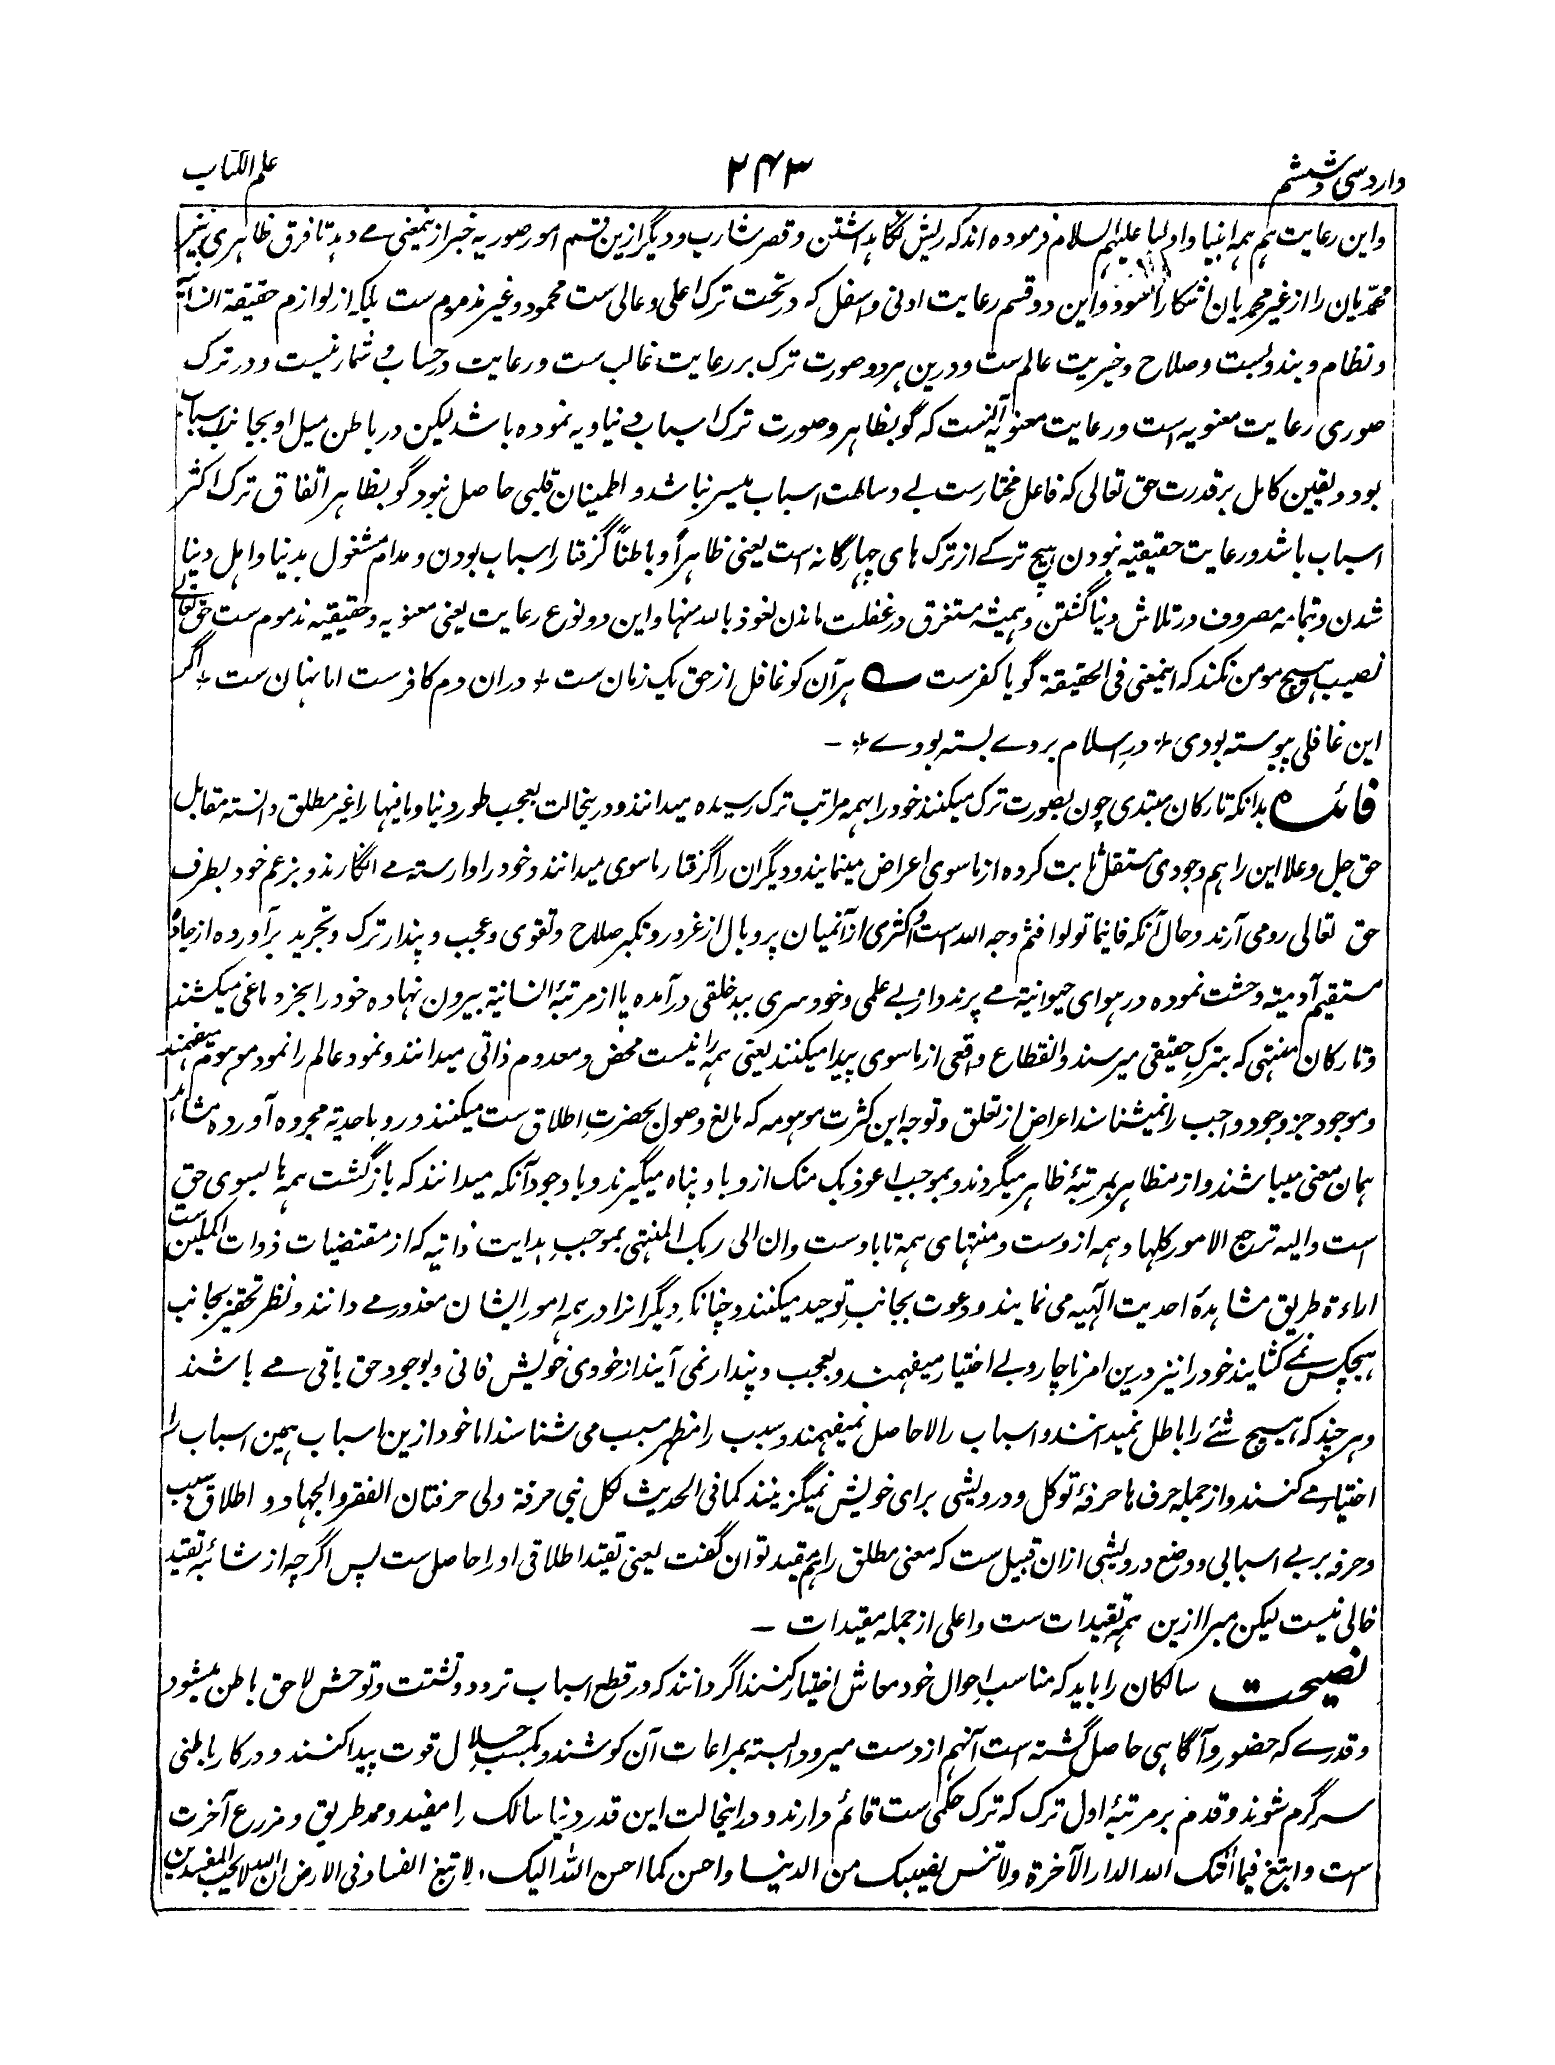 وارد سی و ششم
۲۴۳
علم الکتاب
و این رعایت هم همه انبیا و اولیا علیهم السلام فرموده اند که ریش نگاهداشتن و قصر شارب و دیگر ازین قسم امور صوریه خبر ازینمعنی مے دہد تا فرق ظاہری نیز
محمدیان را از غیر محمدیان آشکارا شود و این دو قسم رعایت ادنی و اسفل که در تحت ترک اعلی و عالی ست محمود و غیر مذموم ست بلکه از لوازم حقیقة انسانیة
و نظام و بندوبست و صلاح و خیریت عالم ست و درین ہر دو صورت ترک بر رعایت غالب ست و رعایت در حساب و شمار نیست و در ترک
صوری رعایت معنویہ است و رعایت معنویہ آنست که گو بظاہر و صورت ترک اسباب دنیاویہ نموده باشد لیکن در باطن میل او بجانب اسباب
بود و یقین کامل بر قدرت حق تعالی که فاعل مختار ست بے وساطت اسباب میسر نباشد و اطمینان قلبی حاصل نبود گو بظاہر اتفاق ترک اکثر
اسباب باشد و رعایت حقیقیہ نبودن ہیچ ترکے از ترک ہای چہارگانہ است یعنی ظاہراً و باطناً گرفتار اسباب بودن و مدام مشغول بدنیا و اہل دنیا
شدن و بتمامہ مصروف در تلاش دنیا گشتن و ہمیشہ مستغرق در غفلت ماندن نعوذ باللہ منہا و این دو نوع رعایت یعنی معنویہ و حقیقیہ مذموم ست حق تعالی
نصیب ہیچ مومن نکند کہ اینمعنی فی الحقیقة گویا کفر ست ؎ ہر آن کو غافل از حق یک زمان ست * در آن دم کافر ست اما نہان ست * اگر
این غافلی پیوستہ بودی * در اسلام بر وے بستہ بودے * ـ
فائدہ بدانکہ تارکان مبتدی چون بصورت ترک میکنند خود را بہمہ مراتب ترک رسیدہ میدانند و درینحالت بعجب طور دنیا و مافیہا را غیر مطلق دانستہ مقابل
حق جل و علا این را ہم وجودی مستقل ثابت کردہ از ماسوی اعراض مینمایند و دیگران را گرفتار ماسوی میدانند و خود را وارستہ مے انگارند و بزعم خود بطرف
حق تعالی رو می آرند و حال آنکہ فاینما تولوا فثم وجہ اللہ است و اکثری از آنمیان پر و بال از غرور و تکبر صلاح و تقوی و عجب و پندار ترک و تجرید برآوردہ از جادۂ
مستقیم آدمیتہ وحشت نمودہ در ہوای حیوانیة مے پرند و از بے علمی و خود سری ببد خلقی درآمدہ پا از مرتبۂ انسانیة بیرون نہادہ خود را بخر دماغی میکشند
و تارکان منتہی کہ بترک حقیقی میرسند و انقطاع واقعی از ماسوی پیدا میکنند یعنی ہمہ را نیست محض و معدوم ذاتی میدانند و نمود عالم را نمود موہوم میفہمند
و موجود جز وجود واجب را نمیشناسند اعراض از تعلق و توجہ این کثرت موہومہ کہ مانع وصول بحضرت اطلاق ست میکنند و رو باحدیة مجردہ آوردہ مشاہد
ہمان معنی میباشند و از مظاہر بمرتبۂ ظاہر میگردند و بموجب اعوذ بک منک ازو باو پناہ میگیرند و با وجود آنکہ میدانند کہ بازگشت ہمہ ہا بسوی حق
است و الیہ ترجع الامور کلہا و ہمہ ازوست و منتہای ہمہ تا باوست و ان الی ربک المنتہی بموجب ہدایت ذاتیہ کہ از مقتضیات ذوات اکملین ست
اراءة طریق مشاہدۂ احدیت الٓہیہ می نمایند و دعوت بجانب توحید میکنند و چنانکہ دیگرانرا در ہمہ امور ایشان معذور مے دانند و نظر تحقیر بجانب
ہیچکس نمے کشایند خود را نیز درین امر ناچار و بے اختیار میفہمند و بعجب و پندار نمی آیند از خودی خویش فانی و بوجود حق باقی مے باشند
و ہر چند کہ ہیچ شئے را باطل نمیدانند و اسباب را لاحاصل نمیفہمند و سبب را مظہر مسبب می شناسند اما خود ازین اسباب ہمین اسباب را
اختیار مے کنند و از جملہ حرف ہا حرفۂ توکل و درویشی برای خویش نمیگزینند کما فی الحدیث لکل نبی حرفة ولی حرفتان الفقر و الجہاد و اطلاق سبب
و حرفہ بر بے اسبابی و وضع درویشی ازان قبیل ست کہ معنی مطلق را ہم مقید توان گفت یعنی تقید اطلاقی او را حاصل ست پس اگرچہ از شائبہ تقید
خالی نیست لیکن مبرا ازین ہمہ تقیدات ست و اعلی از جملہ مقیدات ـ
نصیحت سالکان را باید کہ مناسب احوال خود معاش اختیار کنند اگر دانند کہ در قطع اسباب تردد و تشتت و توحش لاحق باطن میشود
و قدرے کہ حضور و آگاہی حاصل گشتہ است آنہم از دست میرود البتہ بمراعات آن کوشند و بکسب حلال قوت پیدا کنند و در کار باطنی
سرگرم شوند و قدم بر مرتبۂ اول ترک کہ ترک حکمی ست قائم دارند و درینحالت این قدر دنیا سالک را مفید و ممد طریق و مزرع آخرت
است و ابتغ فیما آتٰک اللہ الدار الآخرة ولا تنس نصیبک من الدنیا و احسن کما احسن اللہ الیک و لا تبغ الفساد فی الارض ان اللہ لا یحب المفسدین